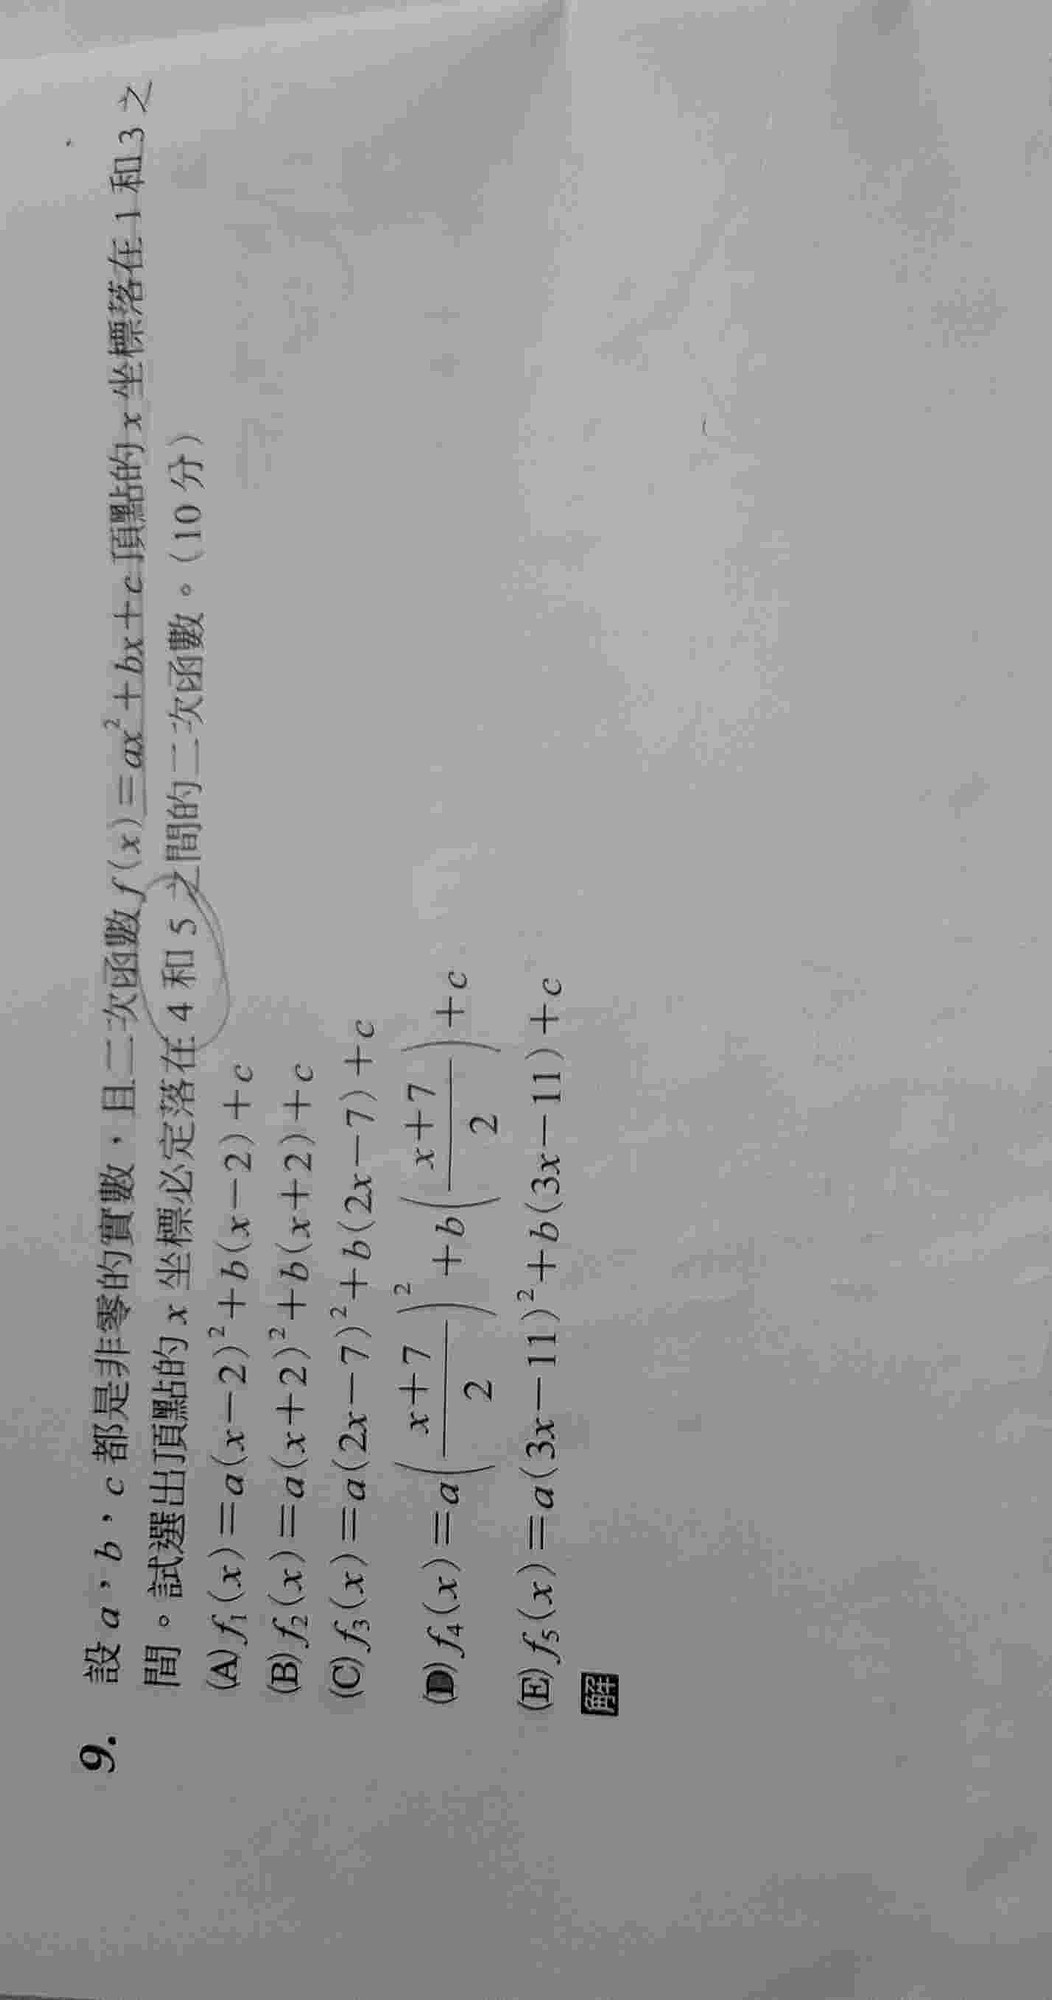 9. 設 a,b,c 都是非零的實數,且二次函數 f(x)=ax²+bx+c 頂點的 x 坐標落在 1 和 3 之
間。試選出頂點的 x 坐標必定落在 4 和 5 之間的二次函數。(10 分)
(A) f₁(x)=a(x-2)²+b(x-2)+c
(B) f₂(x)=a(x+2)²+b(x+2)+c
(C) f₃(x)=a(2x-7)²+b(2x-7)+c
(D) f₄(x)=a((x+7)/2)²+b((x+7)/2)+c
(E) f₅(x)=a(3x-11)²+b(3x-11)+c
解